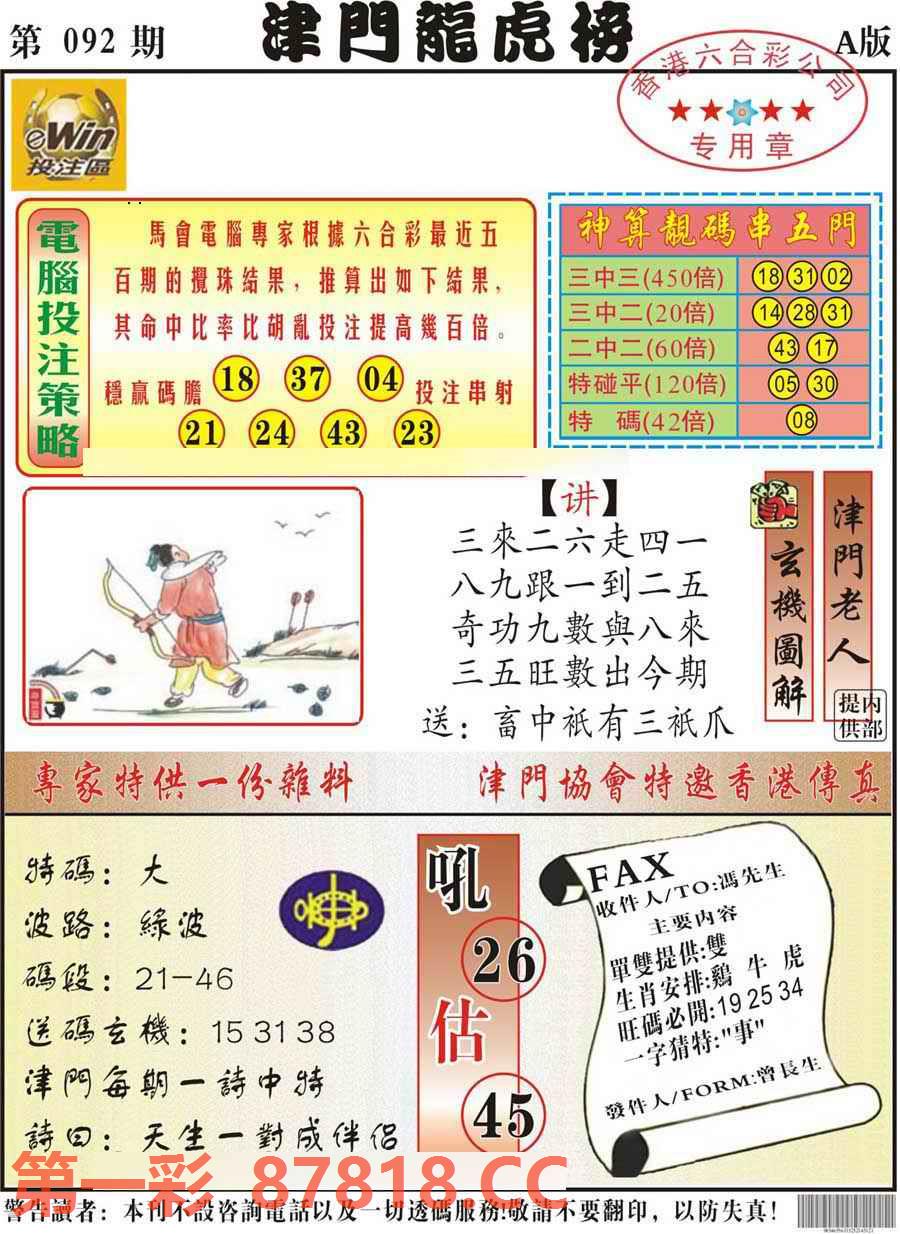 第 092 期
津門龍虎榜
A版
香港六合彩公司
专用章
eWin
投注區
電腦投注策略
馬會電腦專家根據六合彩最近五
百期的攪珠結果，推算出如下結果，
其命中比率比胡亂投注提高幾百倍。
穩贏碼膽 18 37 04 投注串射
21 24 43 23
神算靚碼串五門
三中三(450倍) 18 31 02
三中二(20倍) 14 28 31
二中二(60倍) 43 17
特碰平(120倍) 05 30
特 碼(42倍) 08
【讲】
三來二六走四一
八九跟一到二五
奇功九數與八來
三五旺數出今期
送：畜中衹有三衹爪
玄機圖解
津門老人
内部提供
專家特供一份雜料
津門協會特邀香港傳真
特碼：大
波路：綠波
碼段：21-46
送碼玄機：15 31 38
津門每期一詩中特
詩曰：天生一對成伴侶
吼
26
估
45
FAX
收件人/TO:馮先生
主要内容
單雙提供:雙
生肖安排:鷄 牛 虎
旺碼必開:19 25 34
一字猜特:"事"
發件人/FORM:曾長生
第一彩 87818.CC
警告讀者：本刊不設咨詢電話以及一切透碼服務!敬請不要翻印，以防失真！